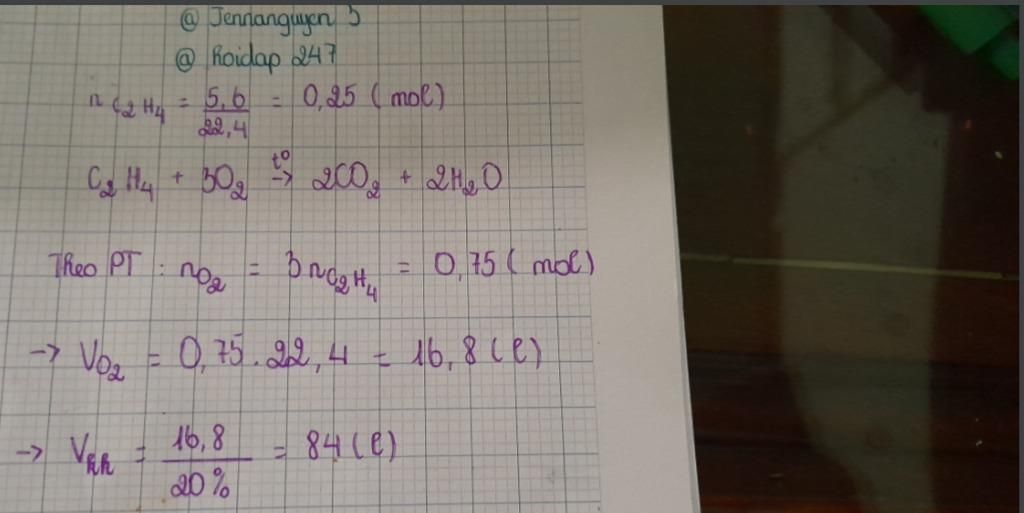 @ Jennanguyen 3
@ Hoidap 247
n C₂H₄ = 5,6 / 22,4 = 0,25 ( mol )
C₂H₄ + 3O₂ t° → 2CO₂ + 2H₂O
Theo PT : nO₂ = 3nC₂H₄ = 0,75 ( mol )
→ VO₂ = 0,75 . 22,4 = 16,8 ( l )
→ Vkk = 16,8 / 20% = 84 ( l )